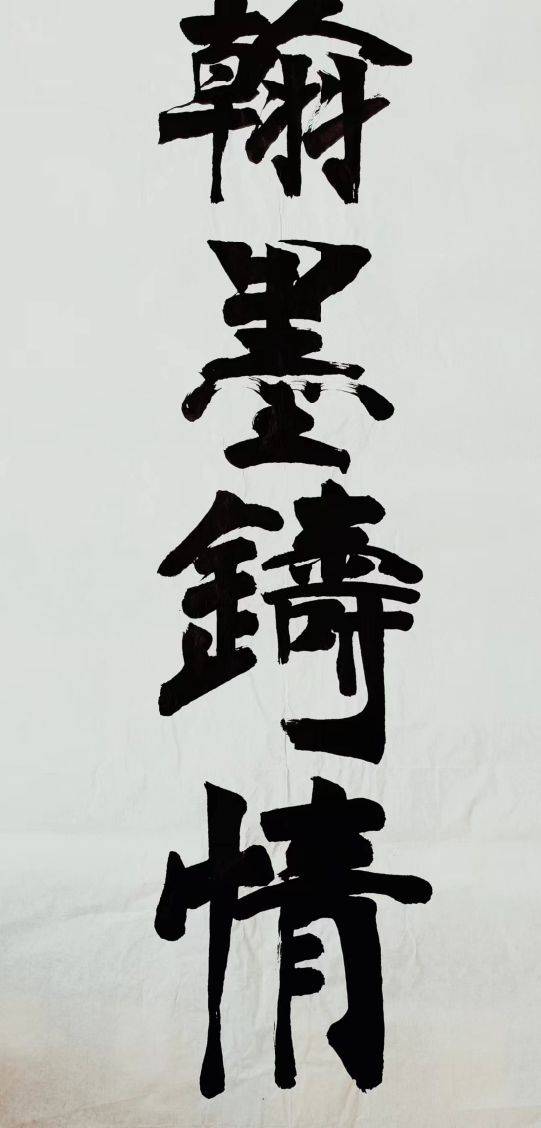 翰墨鑄情